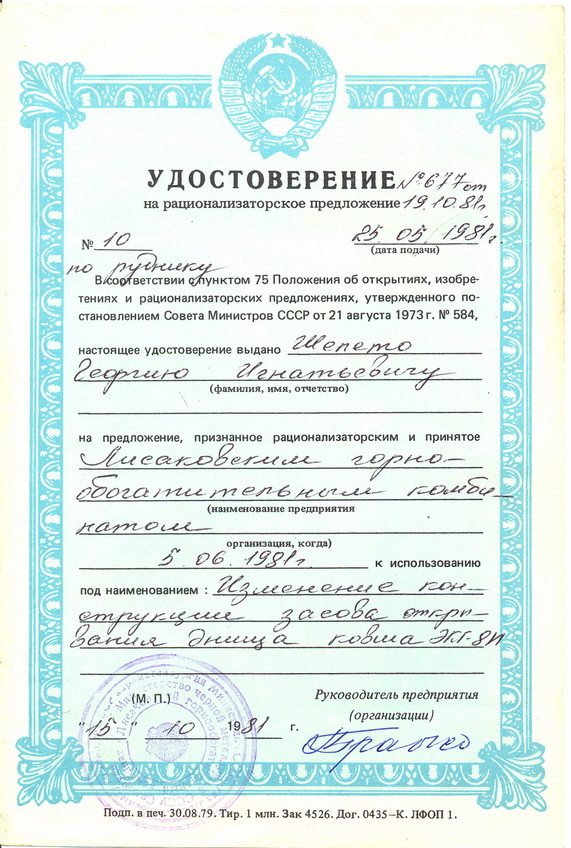 УДОСТОВЕРЕНИЕ №677 от
на рационализаторское предложение 19.10.81г.
№ 10 25.05.1981г.
(дата подачи)
по руднику
В соответствии с пунктом 75 Положения об открытиях, изобре-
тениях и рационализаторских предложениях, утвержденного по-
становлением Совета Министров СССР от 21 августа 1973 г. № 584,
настоящее удостоверение выдано Шепето
Георгию Игнатьевичу
(фамилия, имя, отчетство)
на предложение, признанное рационализаторским и принятое
Лисаковским горно-
обогатительным комби-
(наименование предприятия
натом
организация, когда)
5.06.1981г. к использованию
под наименованием : Изменение кон-
струкции засова откры-
вания днища ковша ЭКГ-8И
(М. П.)
Руководитель предприятия
(организации)
"15" 10 1981 г.
Подп. в печ. 30.08.79. Тир. 1 млн. Зак 4526. Дог. 0435—К. ЛФОП 1.